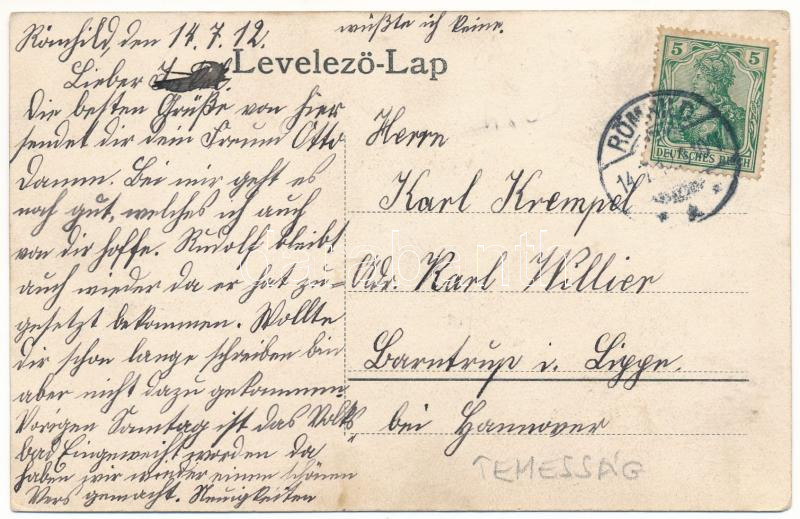 Römhild, den 14.7.12.
Lieber
Die besten Grüße von hier
sendet dir dein Freund Otto
Damm. Bei mir geht es
noch gut, welches ich auch
von dir hoffe. Rudolf bleibt
auch wieder da er hat zu-
gesetzt bekommen. Wollte
dir schon lange schreiben bin
aber nicht dazu gekommen.
Vorigen Samtag ist das Volks
bad Eingeweiht worden da
haben wir wieder einen schönen
Vers gemacht. Neuigkeiten
wüßte ich keine.
Levelezö-Lap
Herrn
Karl Krempel
Adr. Karl Willier
Barntrup i. Lippe.
bei Hannover
5 5
DEUTSCHES REICH
RÖMHILD
14.7.
TEMESSÁG